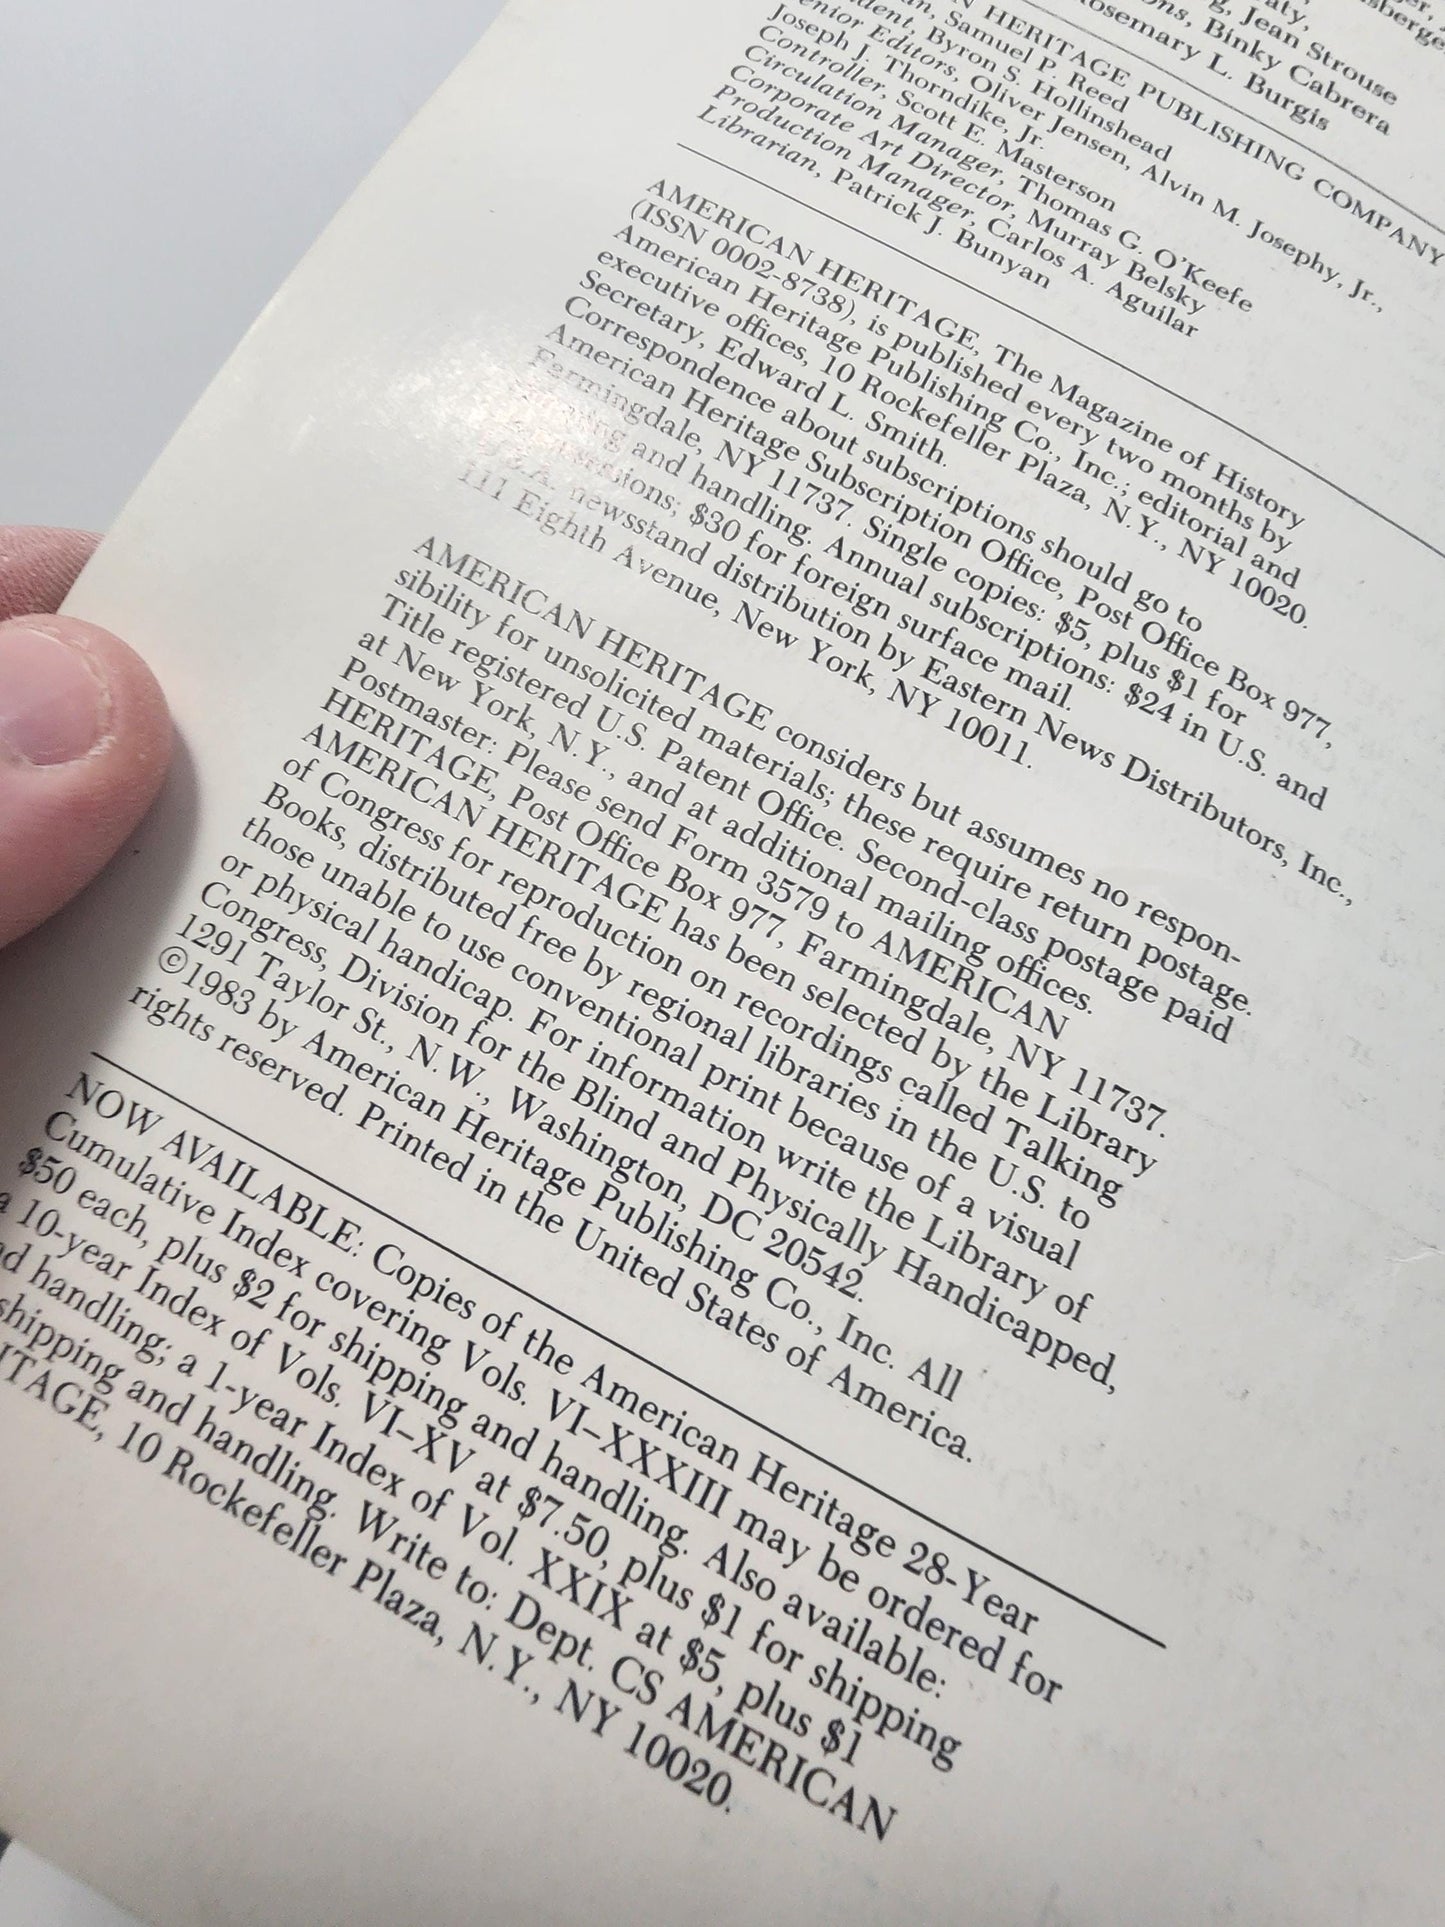 Jean Strouse
Binky Cabrera
Rosemary L. Burgis
HERITAGE PUBLISHING COMPANY
Samuel P. Reed
Byron S. Hollinshead
Editors, Oliver Jensen, Alvin M. Josephy, Jr.,
Joseph J. Thorndike, Jr.
Controller, Scott E. Masterson
Circulation Manager, Thomas G. O'Keefe
Corporate Art Director, Murray Belsky
Production Manager, Carlos A. Aguilar
Librarian, Patrick J. Bunyan
AMERICAN HERITAGE, The Magazine of History
(ISSN 0002-8738), is published every two months by
American Heritage Publishing Co., Inc.; editorial and
executive offices, 10 Rockefeller Plaza, N.Y., NY 10020.
Secretary, Edward L. Smith.
Correspondence about subscriptions should go to
American Heritage Subscription Office, Post Office Box 977,
Farmingdale, NY 11737. Single copies: $5, plus $1 for
and handling. Annual subscriptions: $24 in U.S. and
$30 for foreign surface mail.
U.S.A. newsstand distribution by Eastern News Distributors, Inc.,
111 Eighth Avenue, New York, NY 10011.
AMERICAN HERITAGE considers but assumes no respon-
sibility for unsolicited materials; these require return postage.
Title registered U.S. Patent Office. Second-class postage paid
at New York, N.Y., and at additional mailing offices.
Postmaster: Please send Form 3579 to AMERICAN
HERITAGE, Post Office Box 977, Farmingdale, NY 11737.
AMERICAN HERITAGE has been selected by the Library
of Congress for reproduction on recordings called Talking
Books, distributed free by regional libraries in the U.S. to
those unable to use conventional print because of a visual
or physical handicap. For information write the Library of
Congress, Division for the Blind and Physically Handicapped,
1291 Taylor St., N.W., Washington, DC 20542.
©1983 by American Heritage Publishing Co., Inc. All
rights reserved. Printed in the United States of America.
NOW AVAILABLE: Copies of the American Heritage 28-Year
Cumulative Index covering Vols. VI–XXXIII may be ordered for
$50 each, plus $2 for shipping and handling. Also available:
a 10-year Index of Vols. VI–XV at $7.50, plus $1 for shipping
handling; a 1-year Index of Vol. XXIX at $5, plus $1
shipping and handling. Write to: Dept. CS AMERICAN
10 Rockefeller Plaza, N.Y., NY 10020.